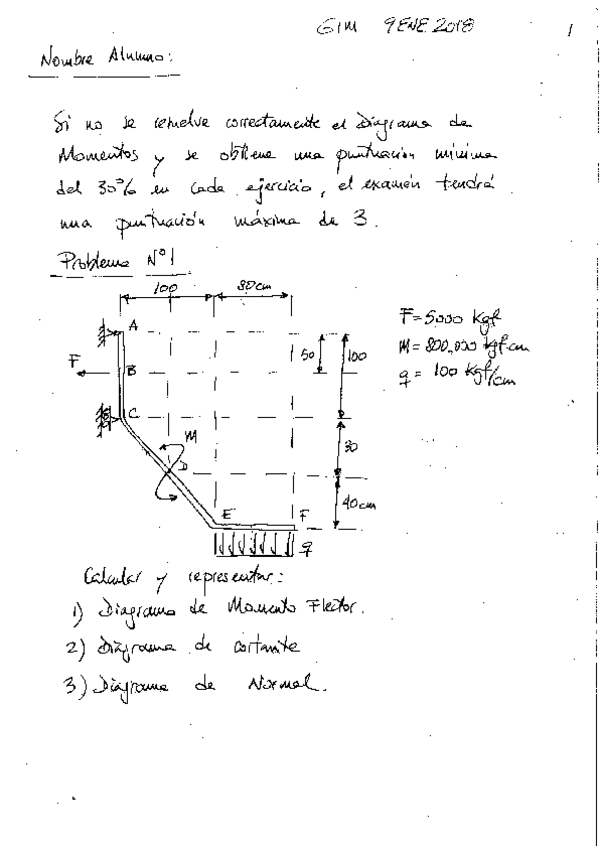 GIM 9 ENE 2018
1
Nombre Alumno:
Si no se resuelve correctamente el Diagrama de
Momentos y se obtiene una puntuación mínima
del 30% en cada ejercicio, el examén tendrá
una puntuación máxima de 3.
Problema Nº1
100 80cm
A
50 100
F B
C
M
D
30
E F
40cm
q
F=5000 Kgf
M=800,000 Kgf·cm
q= 100 Kgf/cm
Calcular y representar:
1) Diagrama de Momento Flector.
2) Diagrama de cortante
3) Diagrama de Normal.